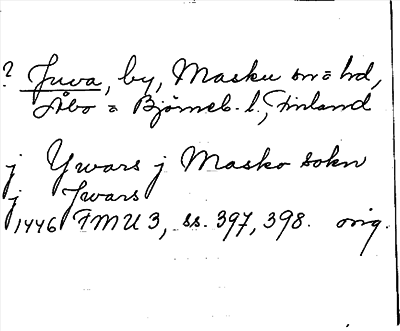 ? Juva, by, Masku sn = hd,
Åbo = Björneb. l., Finland
j Ywars j Masko sokn
j Iwars
1446 FMU 3, ss. 397, 398. orig.